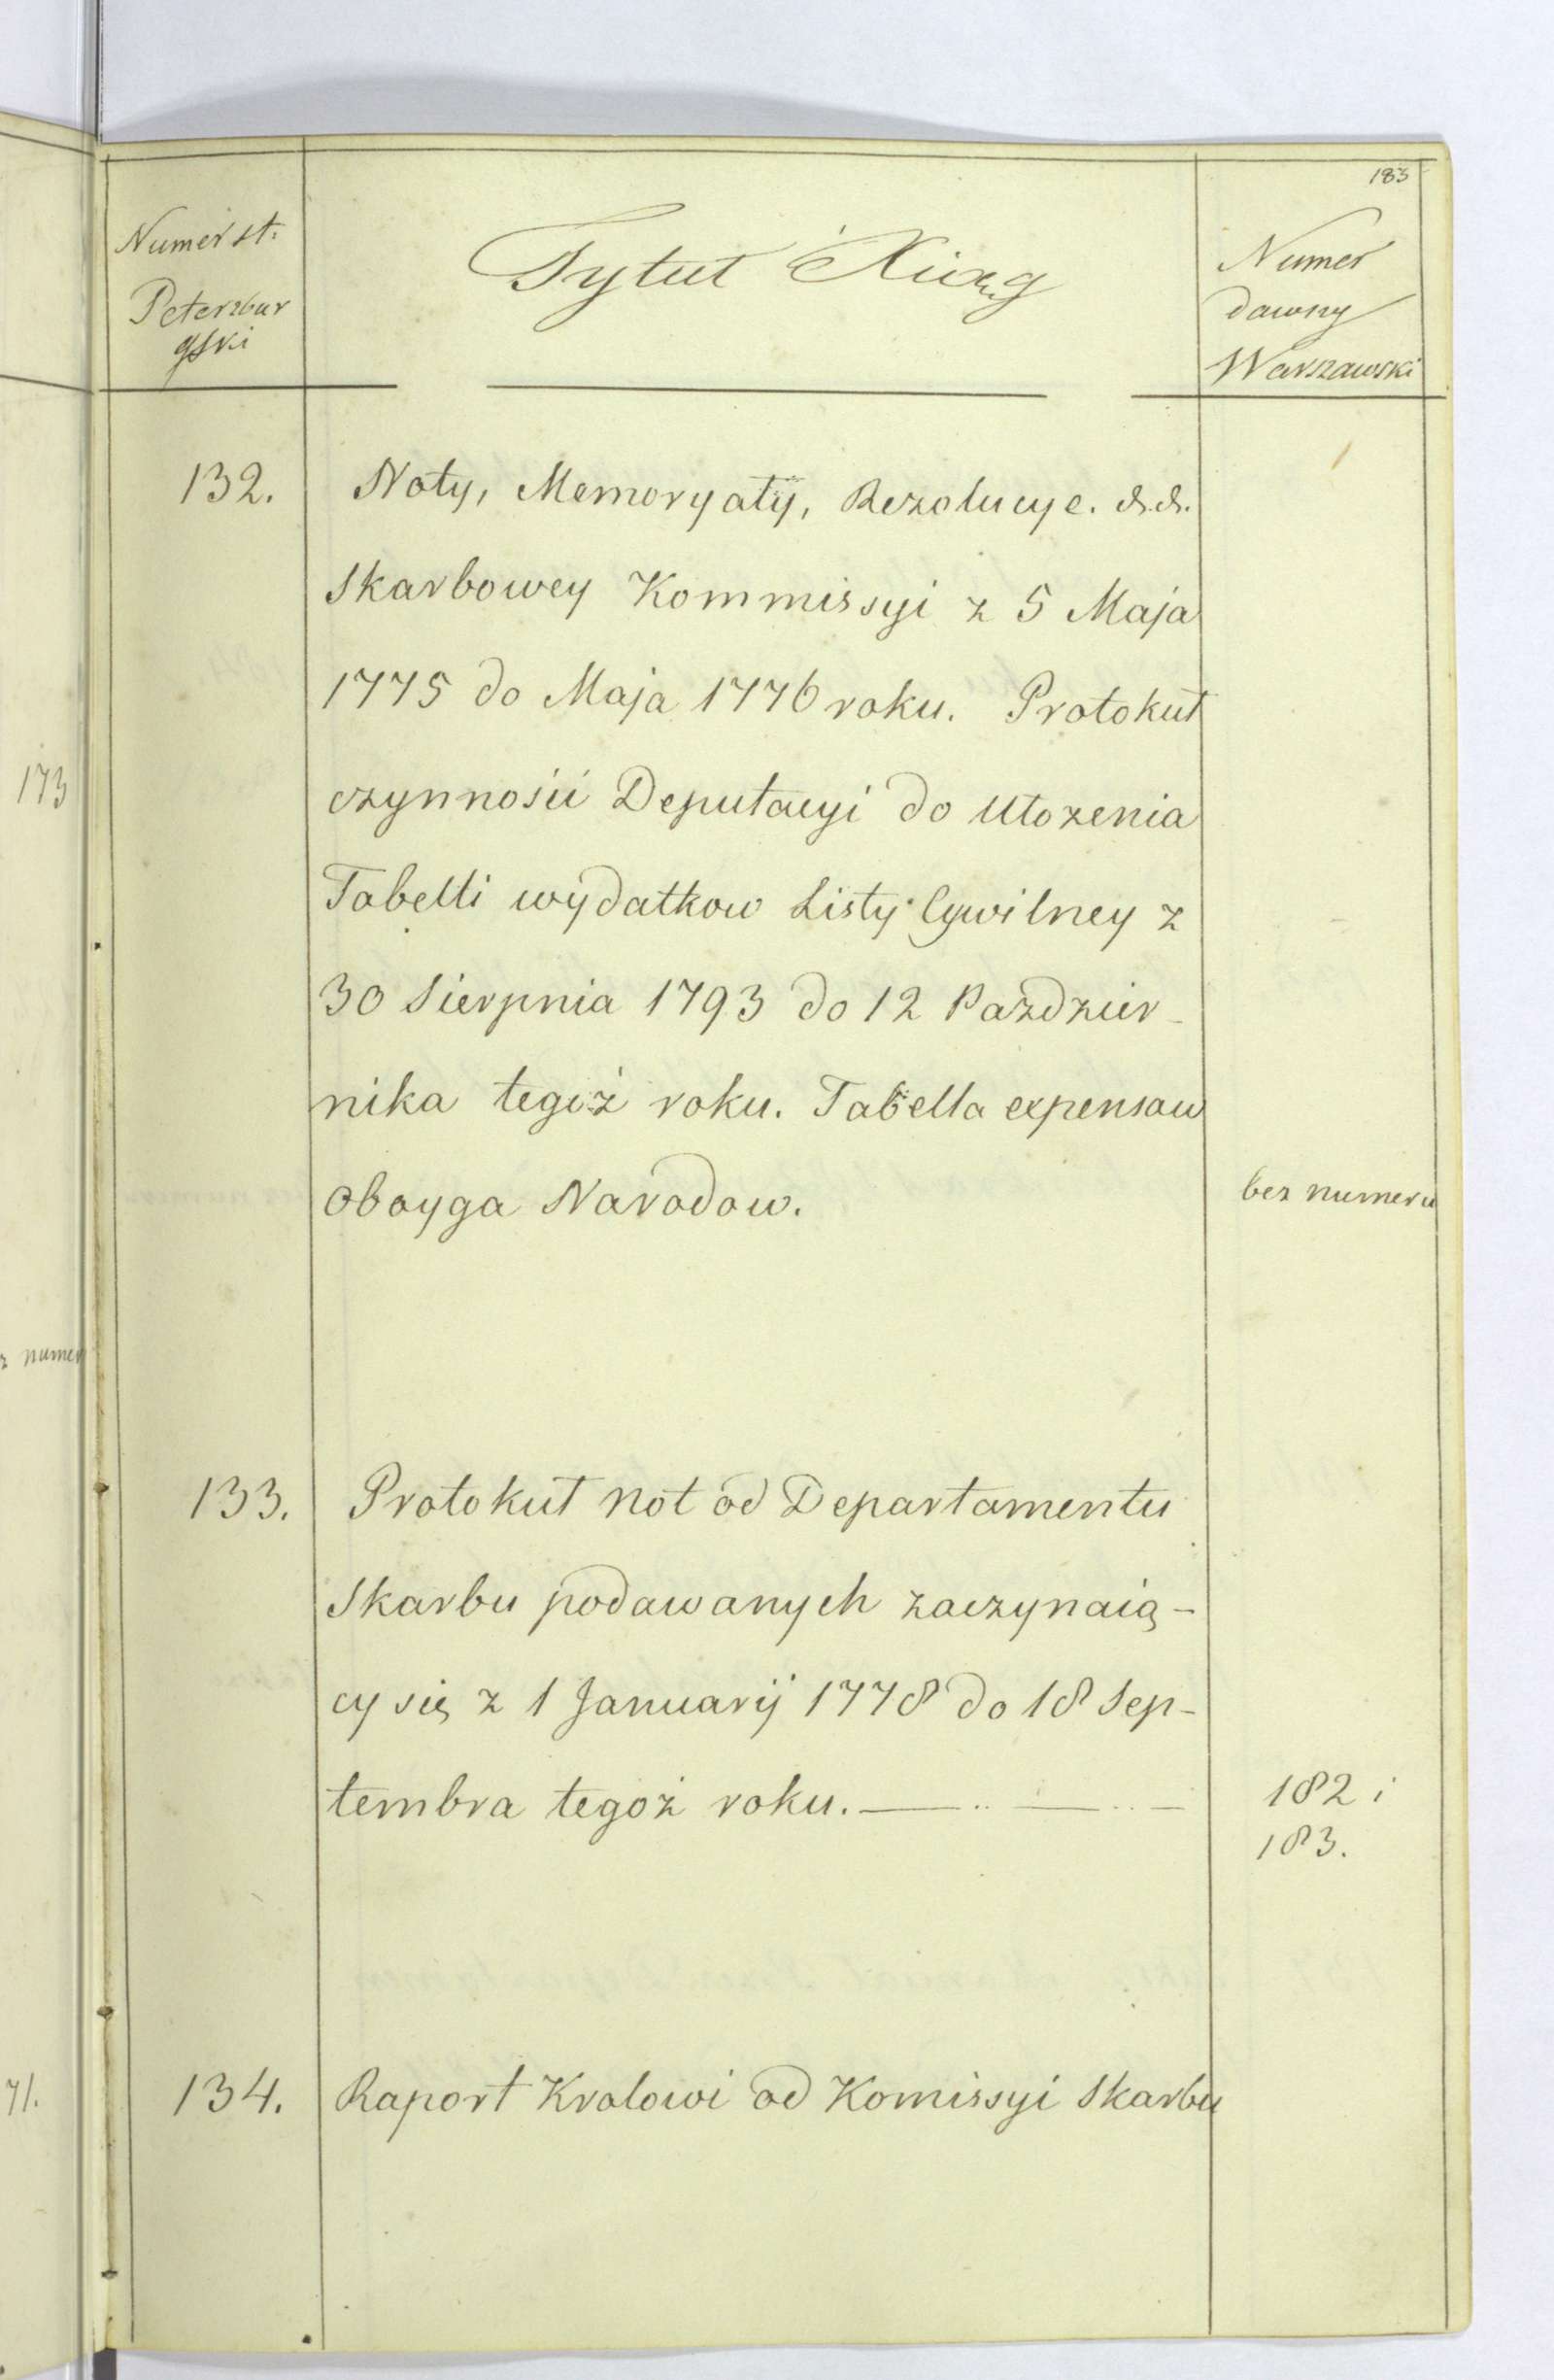 183
Numer st:
Peterzbur
gski
Tytuł Xiąg
Numer
dawny
Warszawski
132. Noty, Memoryały, Rezolucye. &.&.
Skarbowey Kommissyi z 5 Maja
1775 do Maja 1776 roku. Protokuł
173
czynności Deputacyi do Ułożenia
Tabelli wydatkow Listy Cywilney z
30 Sierpnia 1793 do 12 Pazdzier-
nika tegoż roku. Tabella expensow
oboyga Narodow. bez numeru
numer
133. Protokuł not od Departamentu
Skarbu podawanych zaczynaią-
cy się z 1 Januarij 1778 do 18 Sep-
tembra tegoż roku. — .. — .. — 182 i
183.
71.
134. Raport Krolowi od Komissyi Skarbu